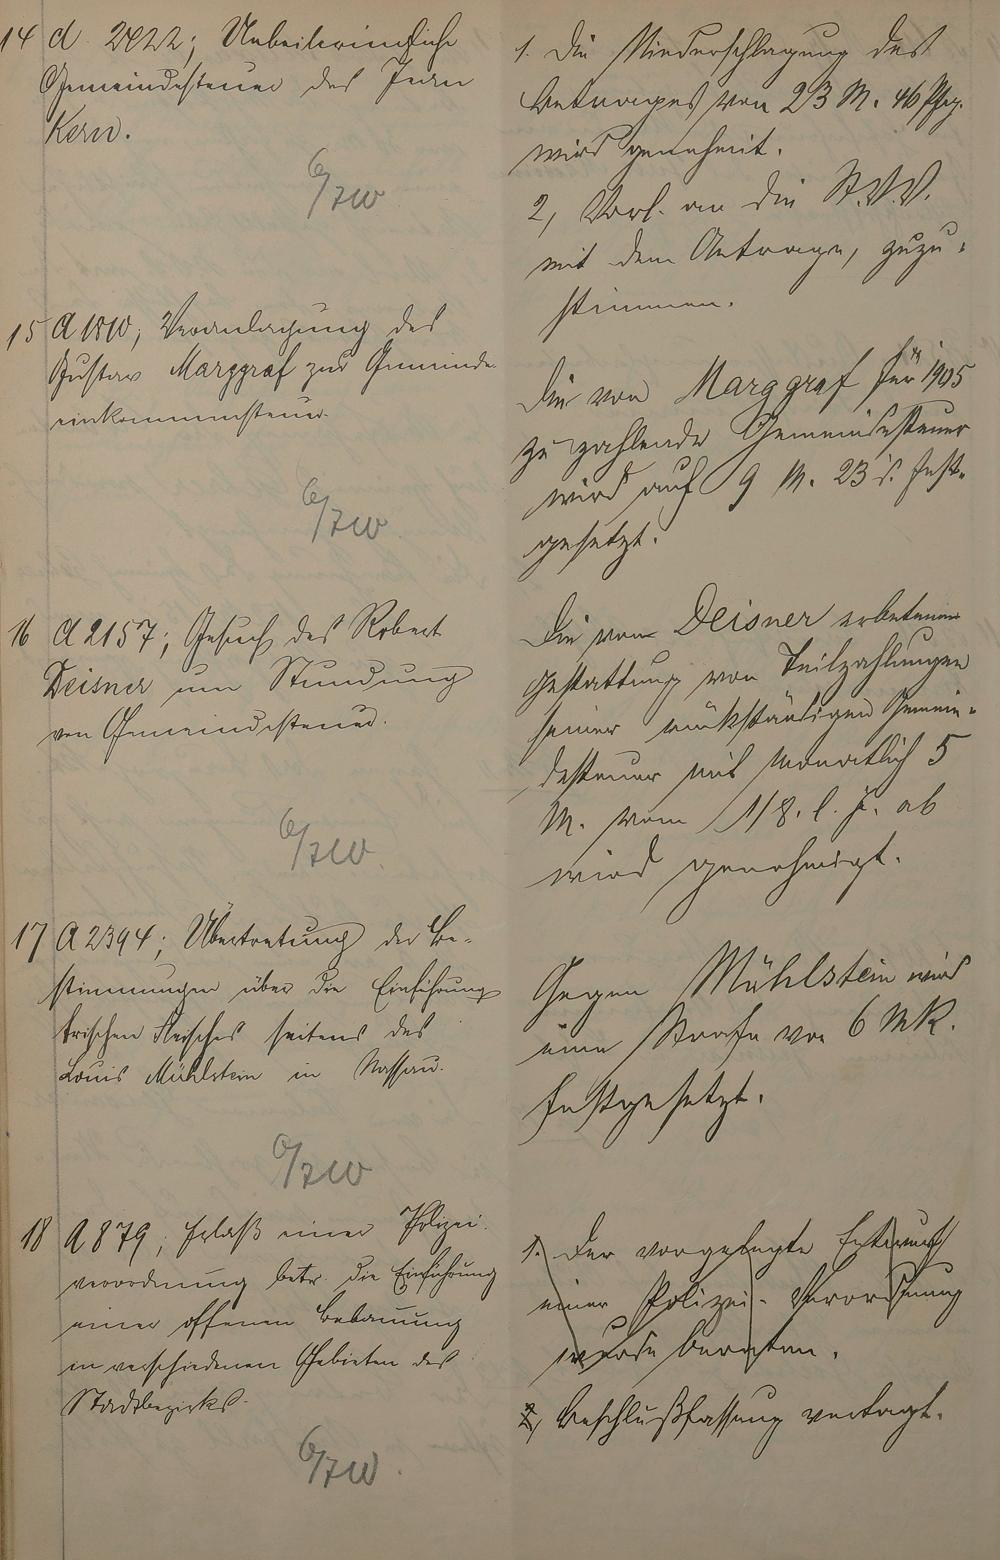 14 A 2422; Unbeitreibliche
Gemeindesteuer des Jean
Kern.
15 A 1810; Veranlagung des
Gustav Marggraf zur Gemeinde-
einkommensteuer.
16 A 2157; Gesuch des Robert
Deisner um Stundung
von Gemeindesteuer.
17 A 2394; Übertretung der Be-
stimmungen über die Einführung
frischen Fleisches seitens des
Louis Mühlstein in Nassau.
18 A 879; Erlaß einer Polizei-
verordnung betr. die Einführung
einer offenen Bebauung
in verschiedenen Gebieten des
Stadtbezirks.
1. Die Niederschlagung des
Betrages von 23 M. 46 Pfg.
wird genehmigt.
2, Vorl. an die St.V.V.
mit dem Antrage, zuzu-
stimmen.
Die von Marggraf für 1905
zu zahlende Gemeindesteuer
wird auf 9 M. 23 d. fest-
gesetzt.
Die vom Deisner erbetene
Gestattung von Teilzahlungen
seiner rückständigen Gemein-
desteuer mit monatlich 5
M. vom 1/8. l. J. ab
wird genehmigt.
Gegen Mühlstein wird
eine Strafe von 6 Mk.
festgesetzt.
1. Der vorgelegte Entwurf
einer Polizei-Verordnung
wurde beraten.
2, Beschlußfassung vertagt.